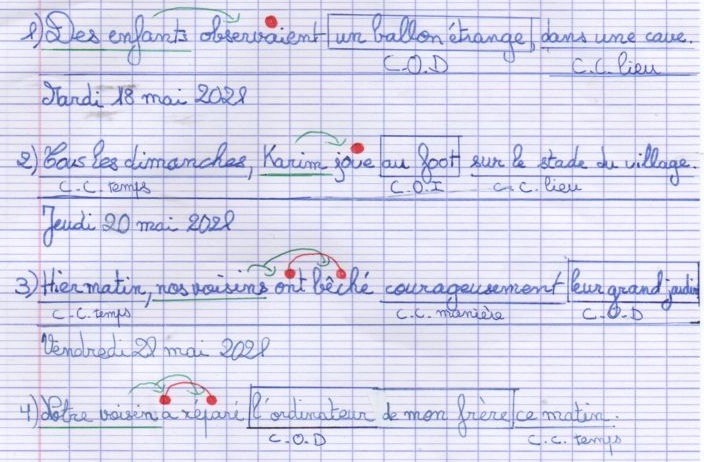 1) Des enfants observaient un ballon étrange, dans une cave.
C.O.D C.C. lieu
Mardi 18 mai 2021
2) Tous les dimanches, Karim joue au foot sur le stade du village.
C.C. temps C.O.I C.C. lieu
Jeudi 20 mai 2021
3) Hier matin, nos voisins ont bêché courageusement leur grand jardin
C.C. temps C.C. manière C.O.D
Vendredi 21 mai 2021
4) Notre voisin a réparé l'ordinateur de mon frère ce matin.
C.O.D C.C. temps